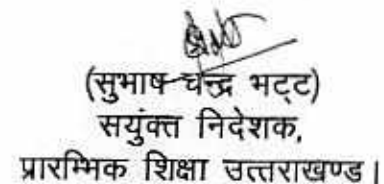 (सुभाष चन्द्र भट्ट)
सयुंक्त निदेशक,
प्रारम्भिक शिक्षा उत्तराखण्ड।